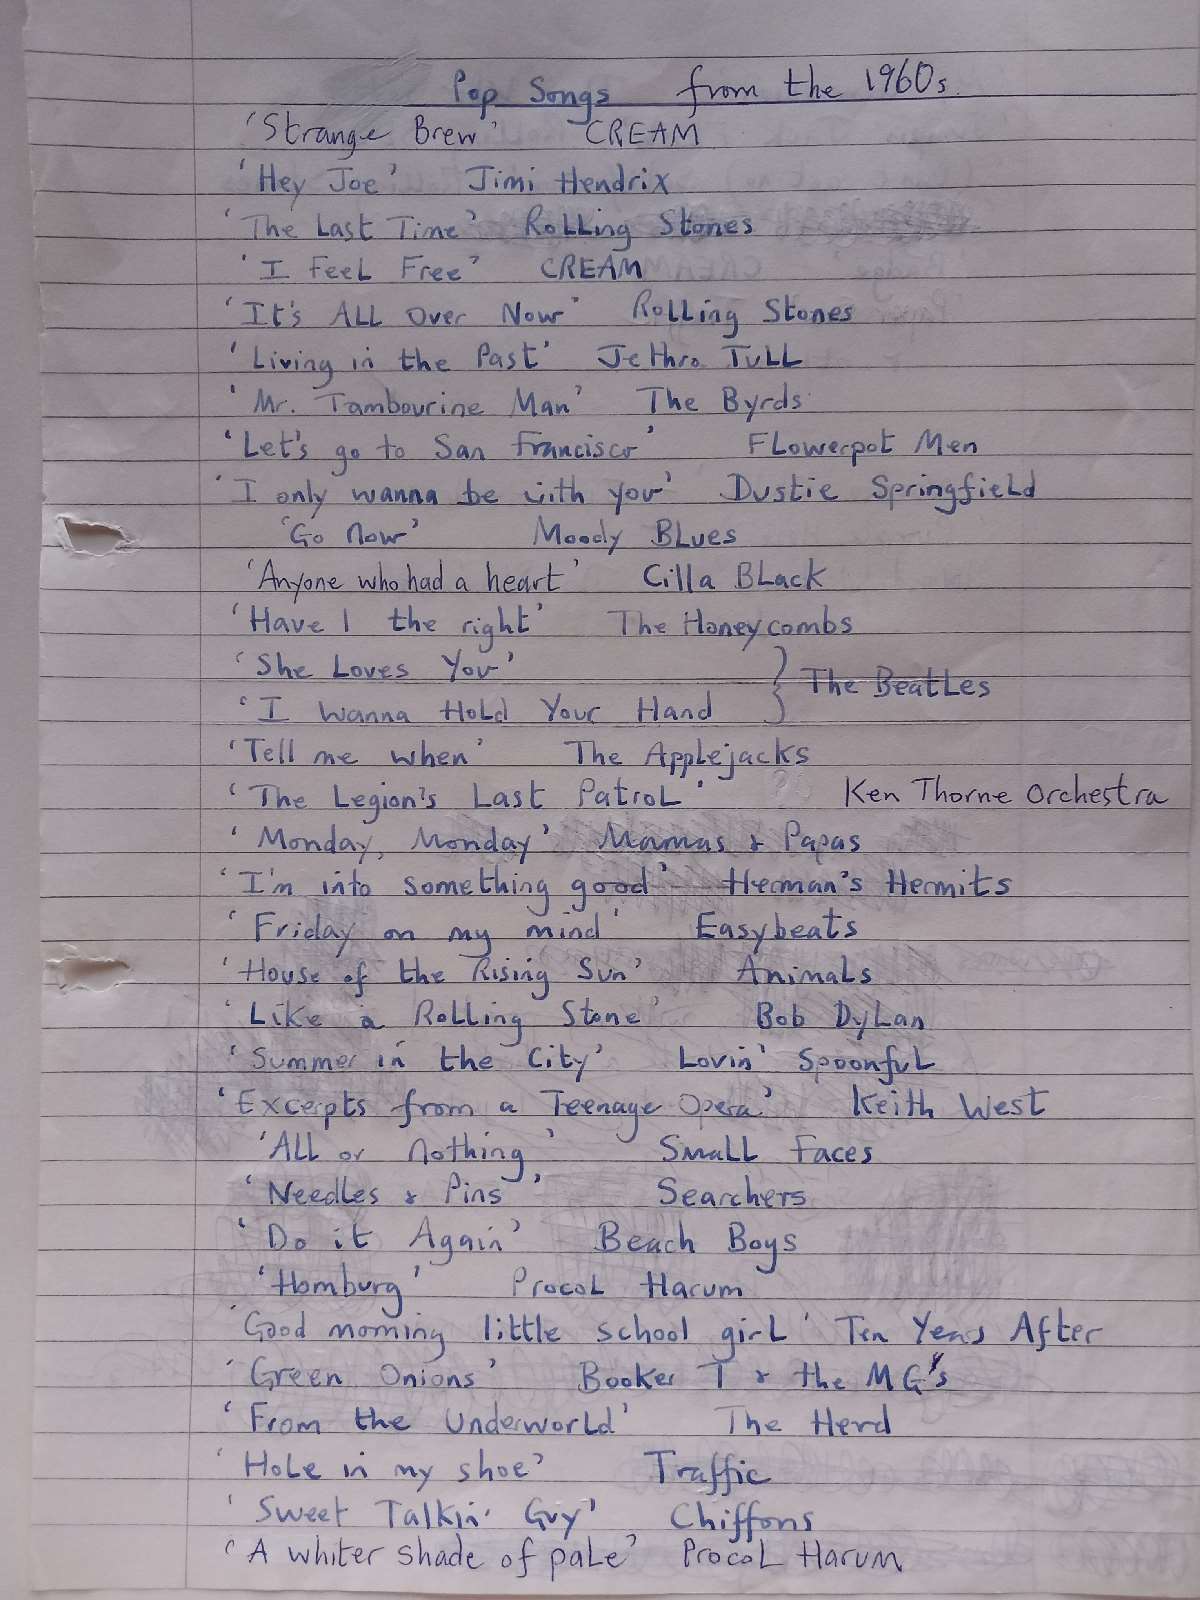 Pop Songs from the 1960s.
'Strange Brew' CREAM
'Hey Joe' Jimi Hendrix
'The Last Time' Rolling Stones
'I Feel Free' CREAM
'It's All Over Now' Rolling Stones
'Living in the Past' Jethro Tull
'Mr. Tambourine Man' The Byrds
'Let's go to San Francisco' Flowerpot Men
'I only wanna be with you' Dustie Springfield
'Go Now' Moody Blues
'Anyone who had a heart' Cilla Black
'Have I the right' The Honeycombs
'She Loves You'
'I Wanna Hold Your Hand } The Beatles
'Tell me when' The Applejacks
'The Legion's Last Patrol' Ken Thorne Orchestra
'Monday, Monday' Mamas & Papas
'I'm into something good' Herman's Hermits
'Friday on my mind' Easybeats
'House of the Rising Sun' Animals
'Like a Rolling Stone' Bob Dylan
'Summer in the City' Lovin' Spoonful
'Excerpts from a Teenage Opera' Keith West
'All or nothing' Small Faces
'Needles & Pins' Searchers
'Do it Again' Beach Boys
'Homburg' Procol Harum
'Good morning little school girl' Ten Years After
'Green Onions' Booker T & the MG's
'From the Underworld' The Herd
'Hole in my shoe' Traffic
'Sweet Talkin' Guy' Chiffons
'A whiter shade of pale' Procol Harum